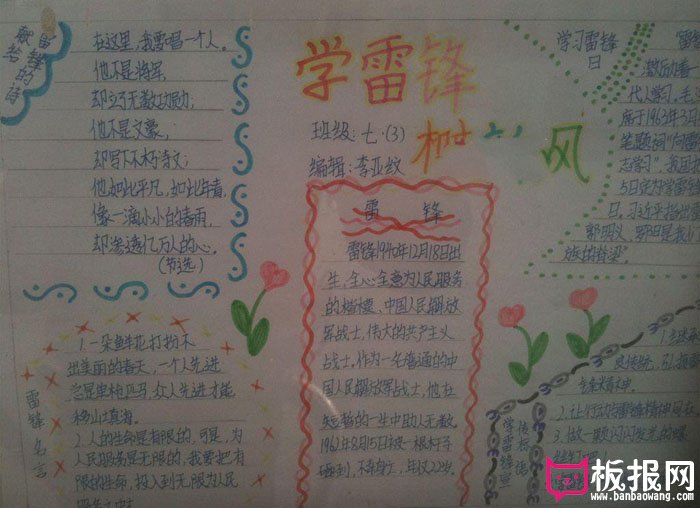 献给
雷锋的诗
在这里,我要唱一个人。
他不是将军,
却立了无数功勋;
他不是文豪,
却写下不朽诗文;
他如此平凡,如此年青,
像一滴小小的春雨,
却渗透亿万人的心。
(节选)
学雷锋
树
风
班级:七·(3)
编辑:李亚纹
雷锋
雷锋1940年12月18日出
生,全心全意为人民服务
的楷模,中国人民解放
军战士,伟大的共产主义
战士,作为一名普通的中
国人民解放军战士,他在
短暂的一生中助人无数。
1962年8月15日被一根杆子
砸到,不幸身亡,年仅22岁。
学习雷锋
日
雷锋
激励着一
代人学习。毛
席于1963年3月
笔题词“向雷锋
志学习”,我国
5日定为学雷锋
日,习近平指出
郭明义,罗阳是我
族的脊梁”
雷锋名言
1.一朵鲜花打扮不
出美丽的春天,一个人先进
总是单枪匹马,众人先进才能
移山填海。
2.人的生命是有限的,可是,为
人民服务是无限的,我要把有
限的生命,投入到无限为人民
服务之中去
学雷锋宣
传标语
1.
良传统,
锋精神。
2.让
雷锋精神
3.做一颗闪闪发光的螺
板报网
www.banbaowang.com